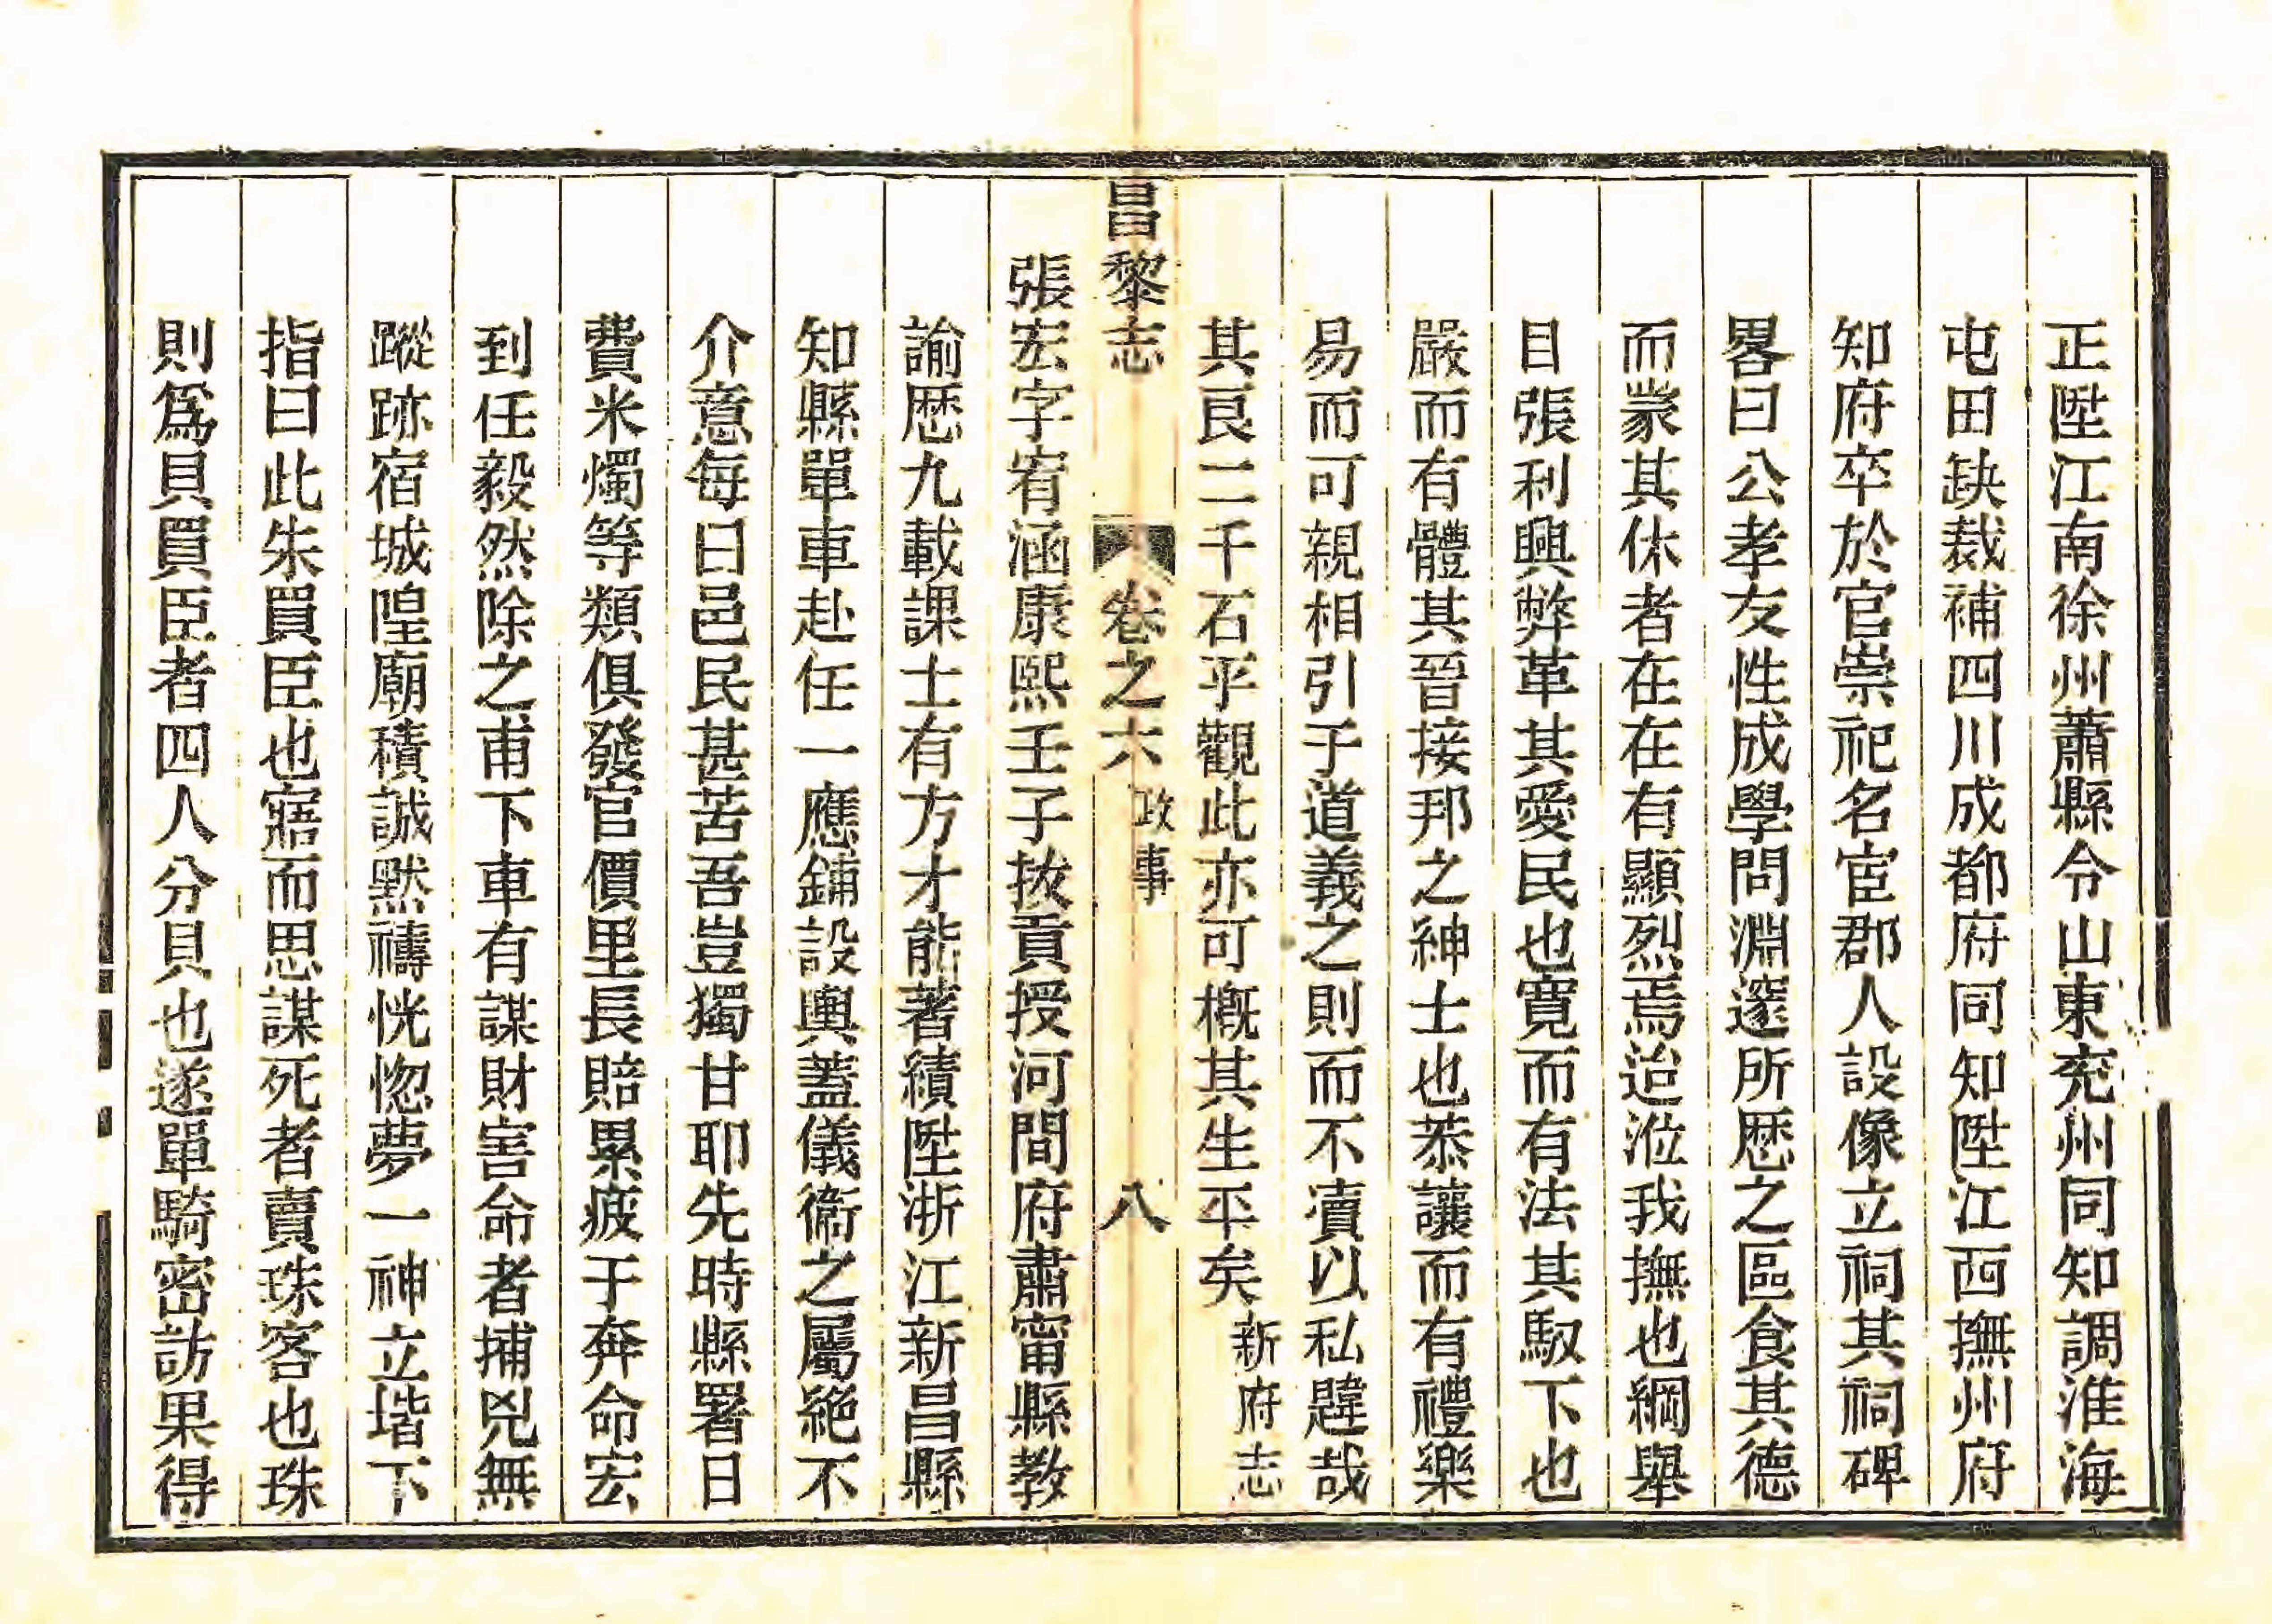 正陞江南徐州蕭縣令山東兖州同知調淮海
屯田缺裁補四川成都府同知陞江西撫州府
知府卒於官崇祀名宦郡人設像立祠其祠碑
畧曰公孝友性成學問淵邃所歴之區食其德
而䝉其休者在在有顯烈焉迨涖我撫也綱舉
目張利興弊革其愛民也寬而有法其馭下也
嚴而有體其晉接邦之紳士也恭讓而有禮樂
易而可親相引子道義之則而不凟以私韙哉
其良二千石乎觀此亦可概其生平矣新府志
昌黎志 卷之六 政事 八
張宏字宥涵康熙壬子拔貢授河間府肅甯縣教
諭歴九載課士有方才能著績陞浙江新昌縣
知縣單車赴任一應鋪設輿蓋儀衞之屬絶不
介意每曰邑民甚苦吾豈獨甘耶先時縣署日
費米燭等類俱發官價里長賠累疲于奔命宏
到任毅然除之甫下車有謀財害命者捕兇無
蹤跡宿城隍廟積誠黙禱恍惚夢一神立堦下
指曰此朱買臣也寤而思謀死者賣珠客也珠
則爲貝買臣者四人分貝也遂單騎密訪果得